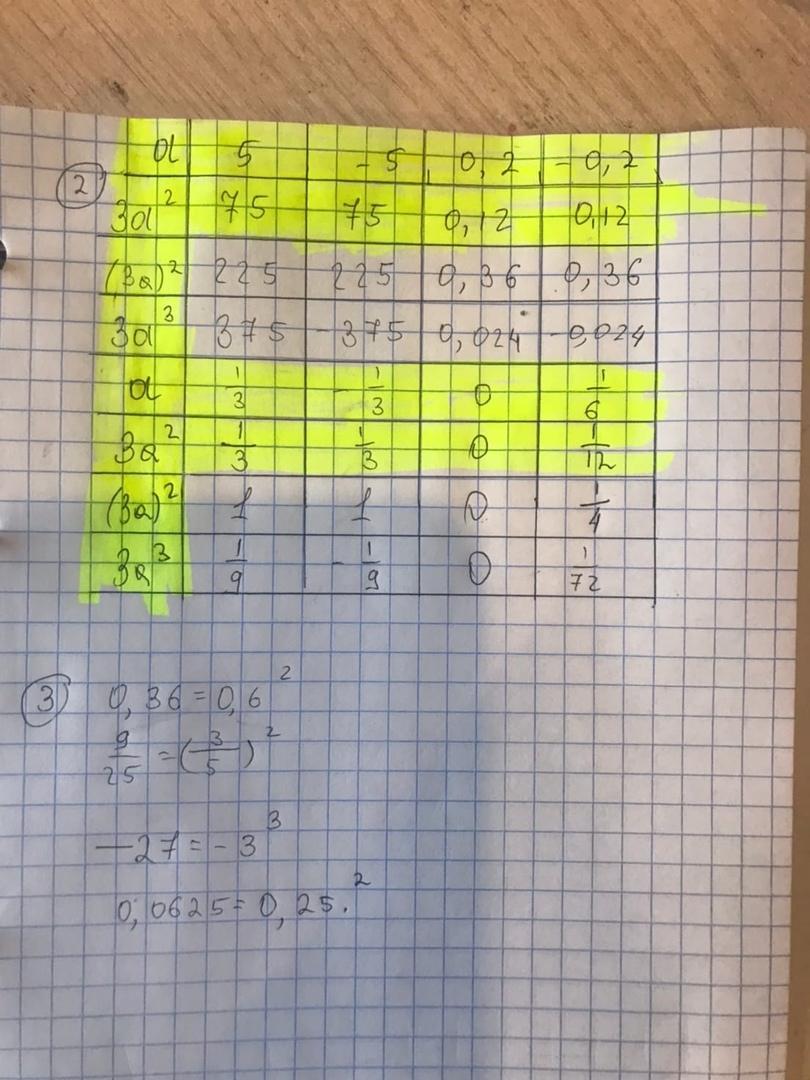 a 5 - 5 0,2 - 0,2
2 3a² 75 75 0,12 0,12
(3a)² 225 225 0,36 0,36
3a³ 375 -375 0,024 -0,024
a 1/3 -1/3 0 1/6
3a² 1/3 1/3 0 1/12
(3a)² 1 1 0 1/4
3a³ 1/9 -1/9 0 1/72
3 0,36 = 0,6²
9/25 = (3/5)²
-27 = -3³
0,0625 = 0,25.²